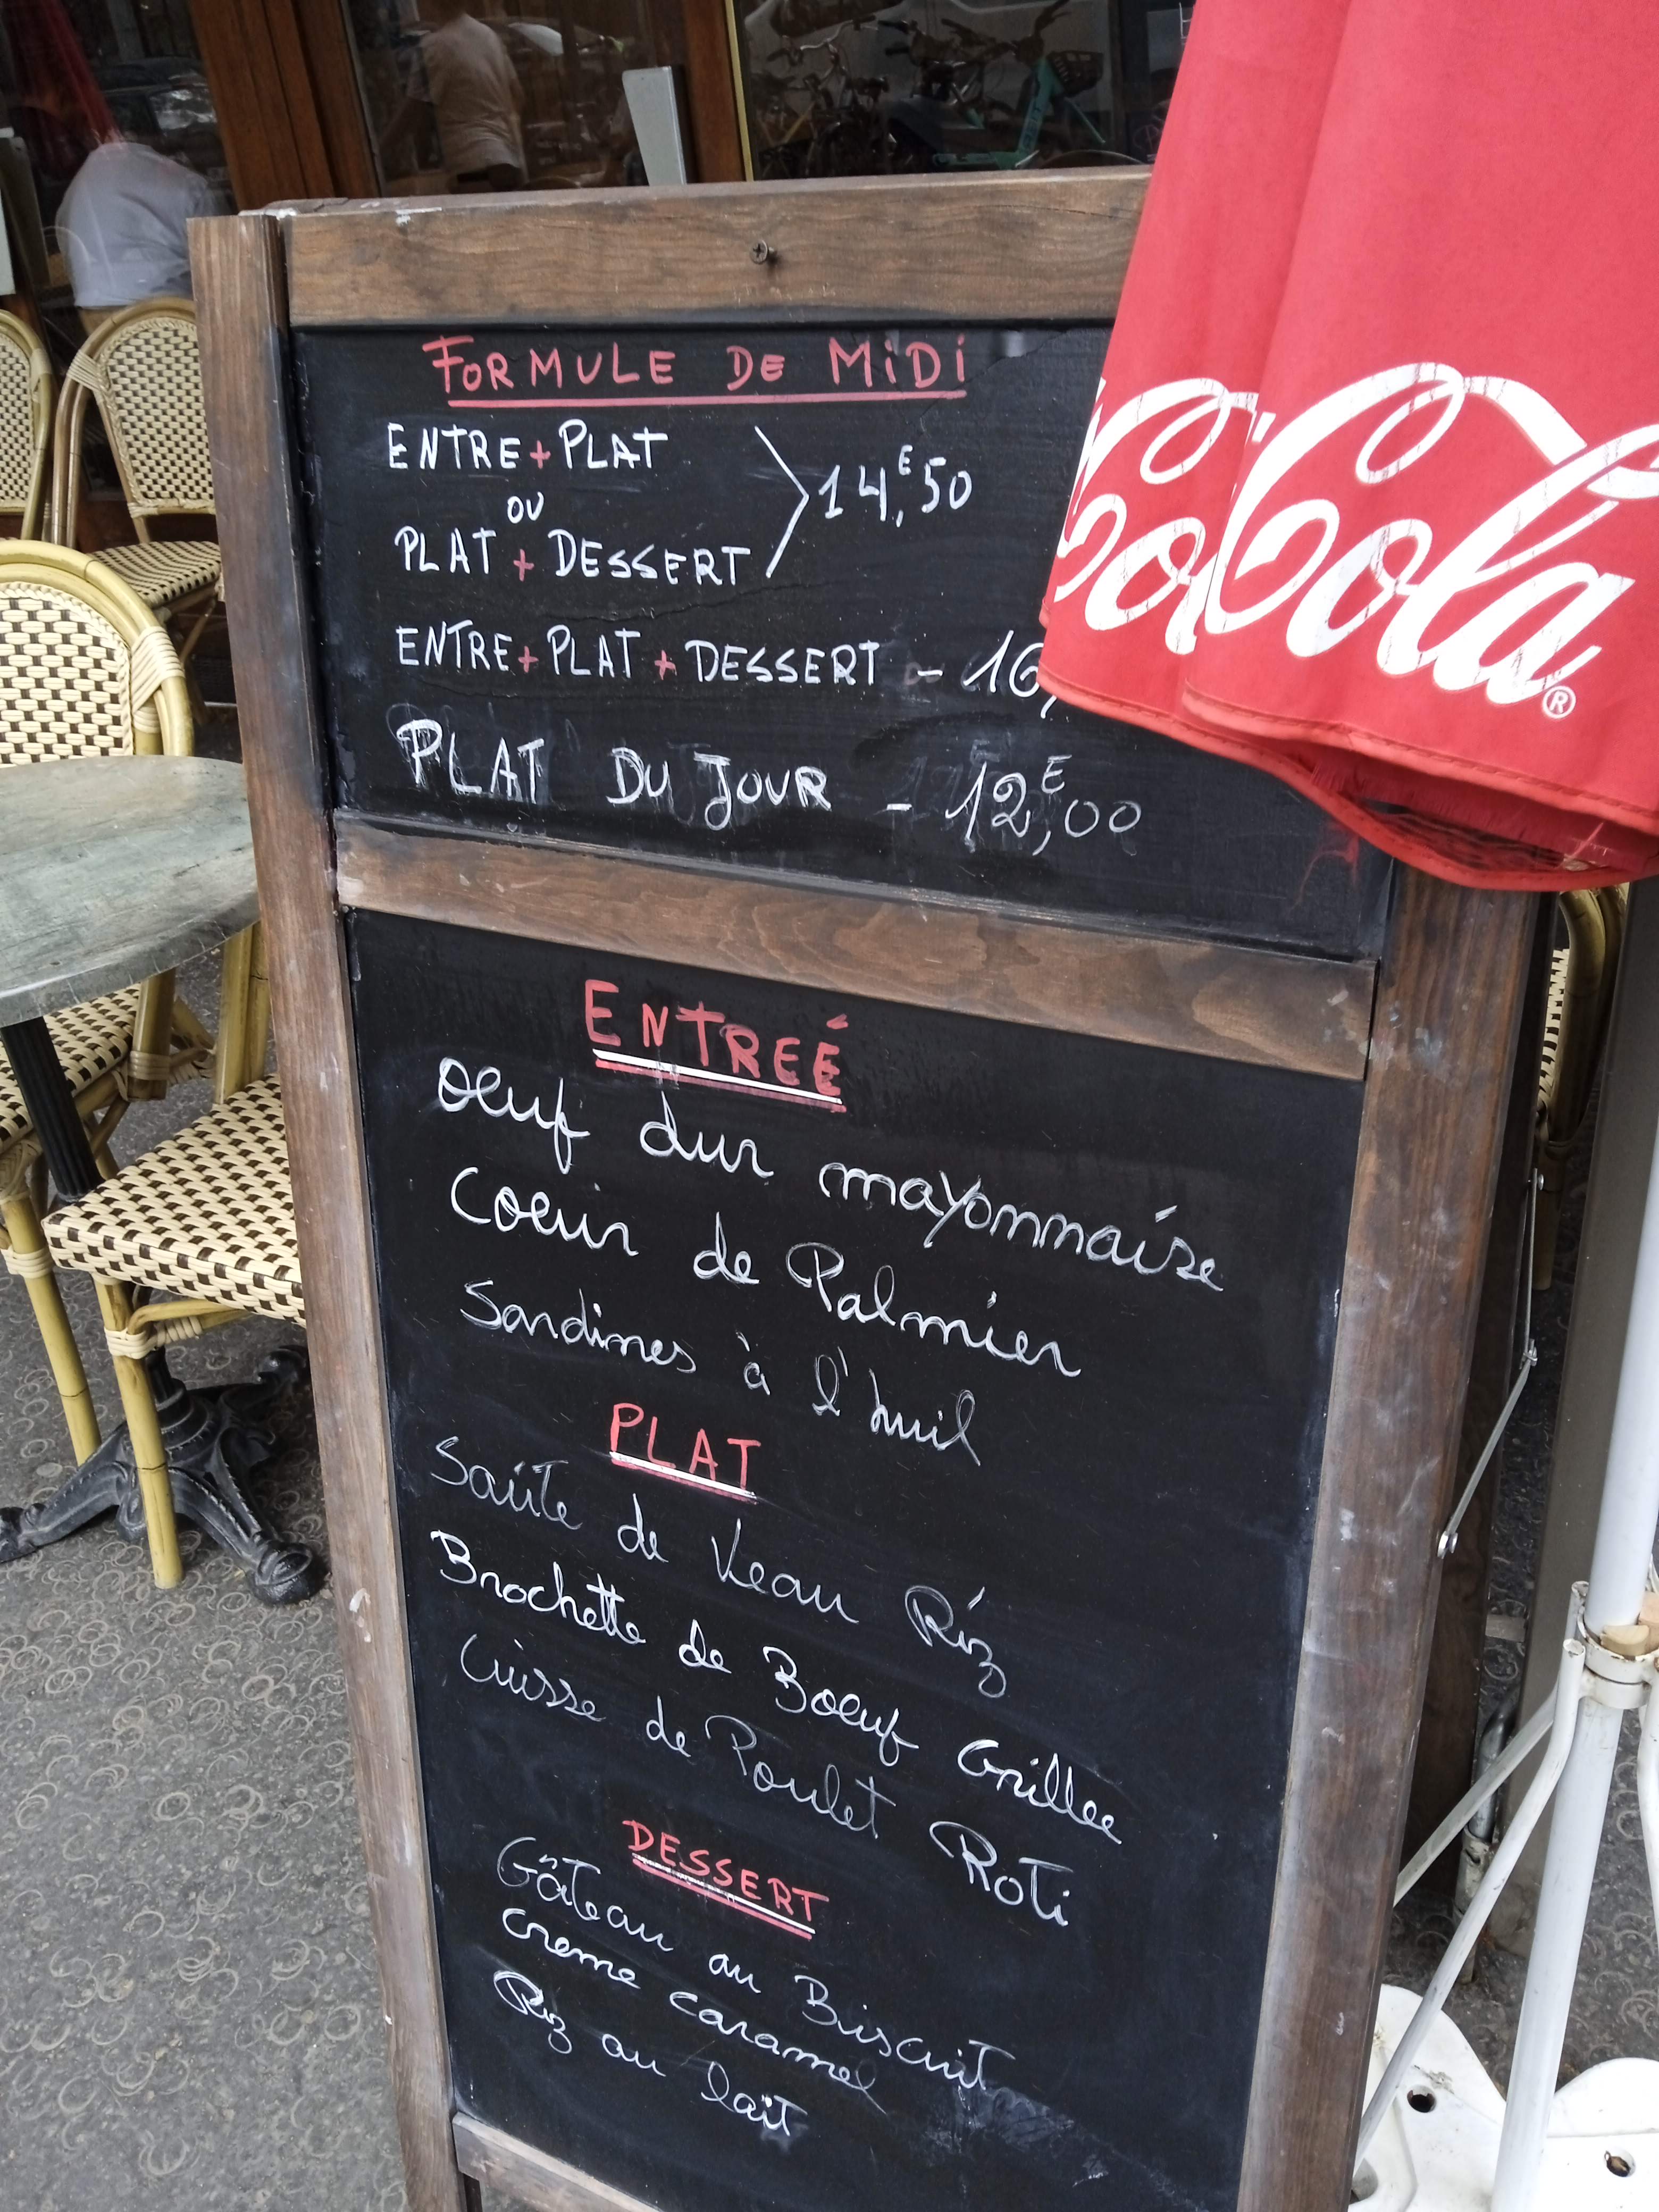 FORMULE DE MiDi
ENTRE+PLAT
OU
PLAT + DESSERT
14,E50
ENTRE+PLAT + DESSERT - 16,
PLAT DU JOUR - 12,E00
Coca-Cola®
ENTREÉ
Oeuf dur mayonnaise
Coeur de Palmier
Sardines à l'huil
PLAT
Saúte de Veau Riz
Brochette de Boeuf Grillee
Cuisse de Poulet Roti
DESSERT
Gâteau au Biscuit
creme caramel
Riz au lait